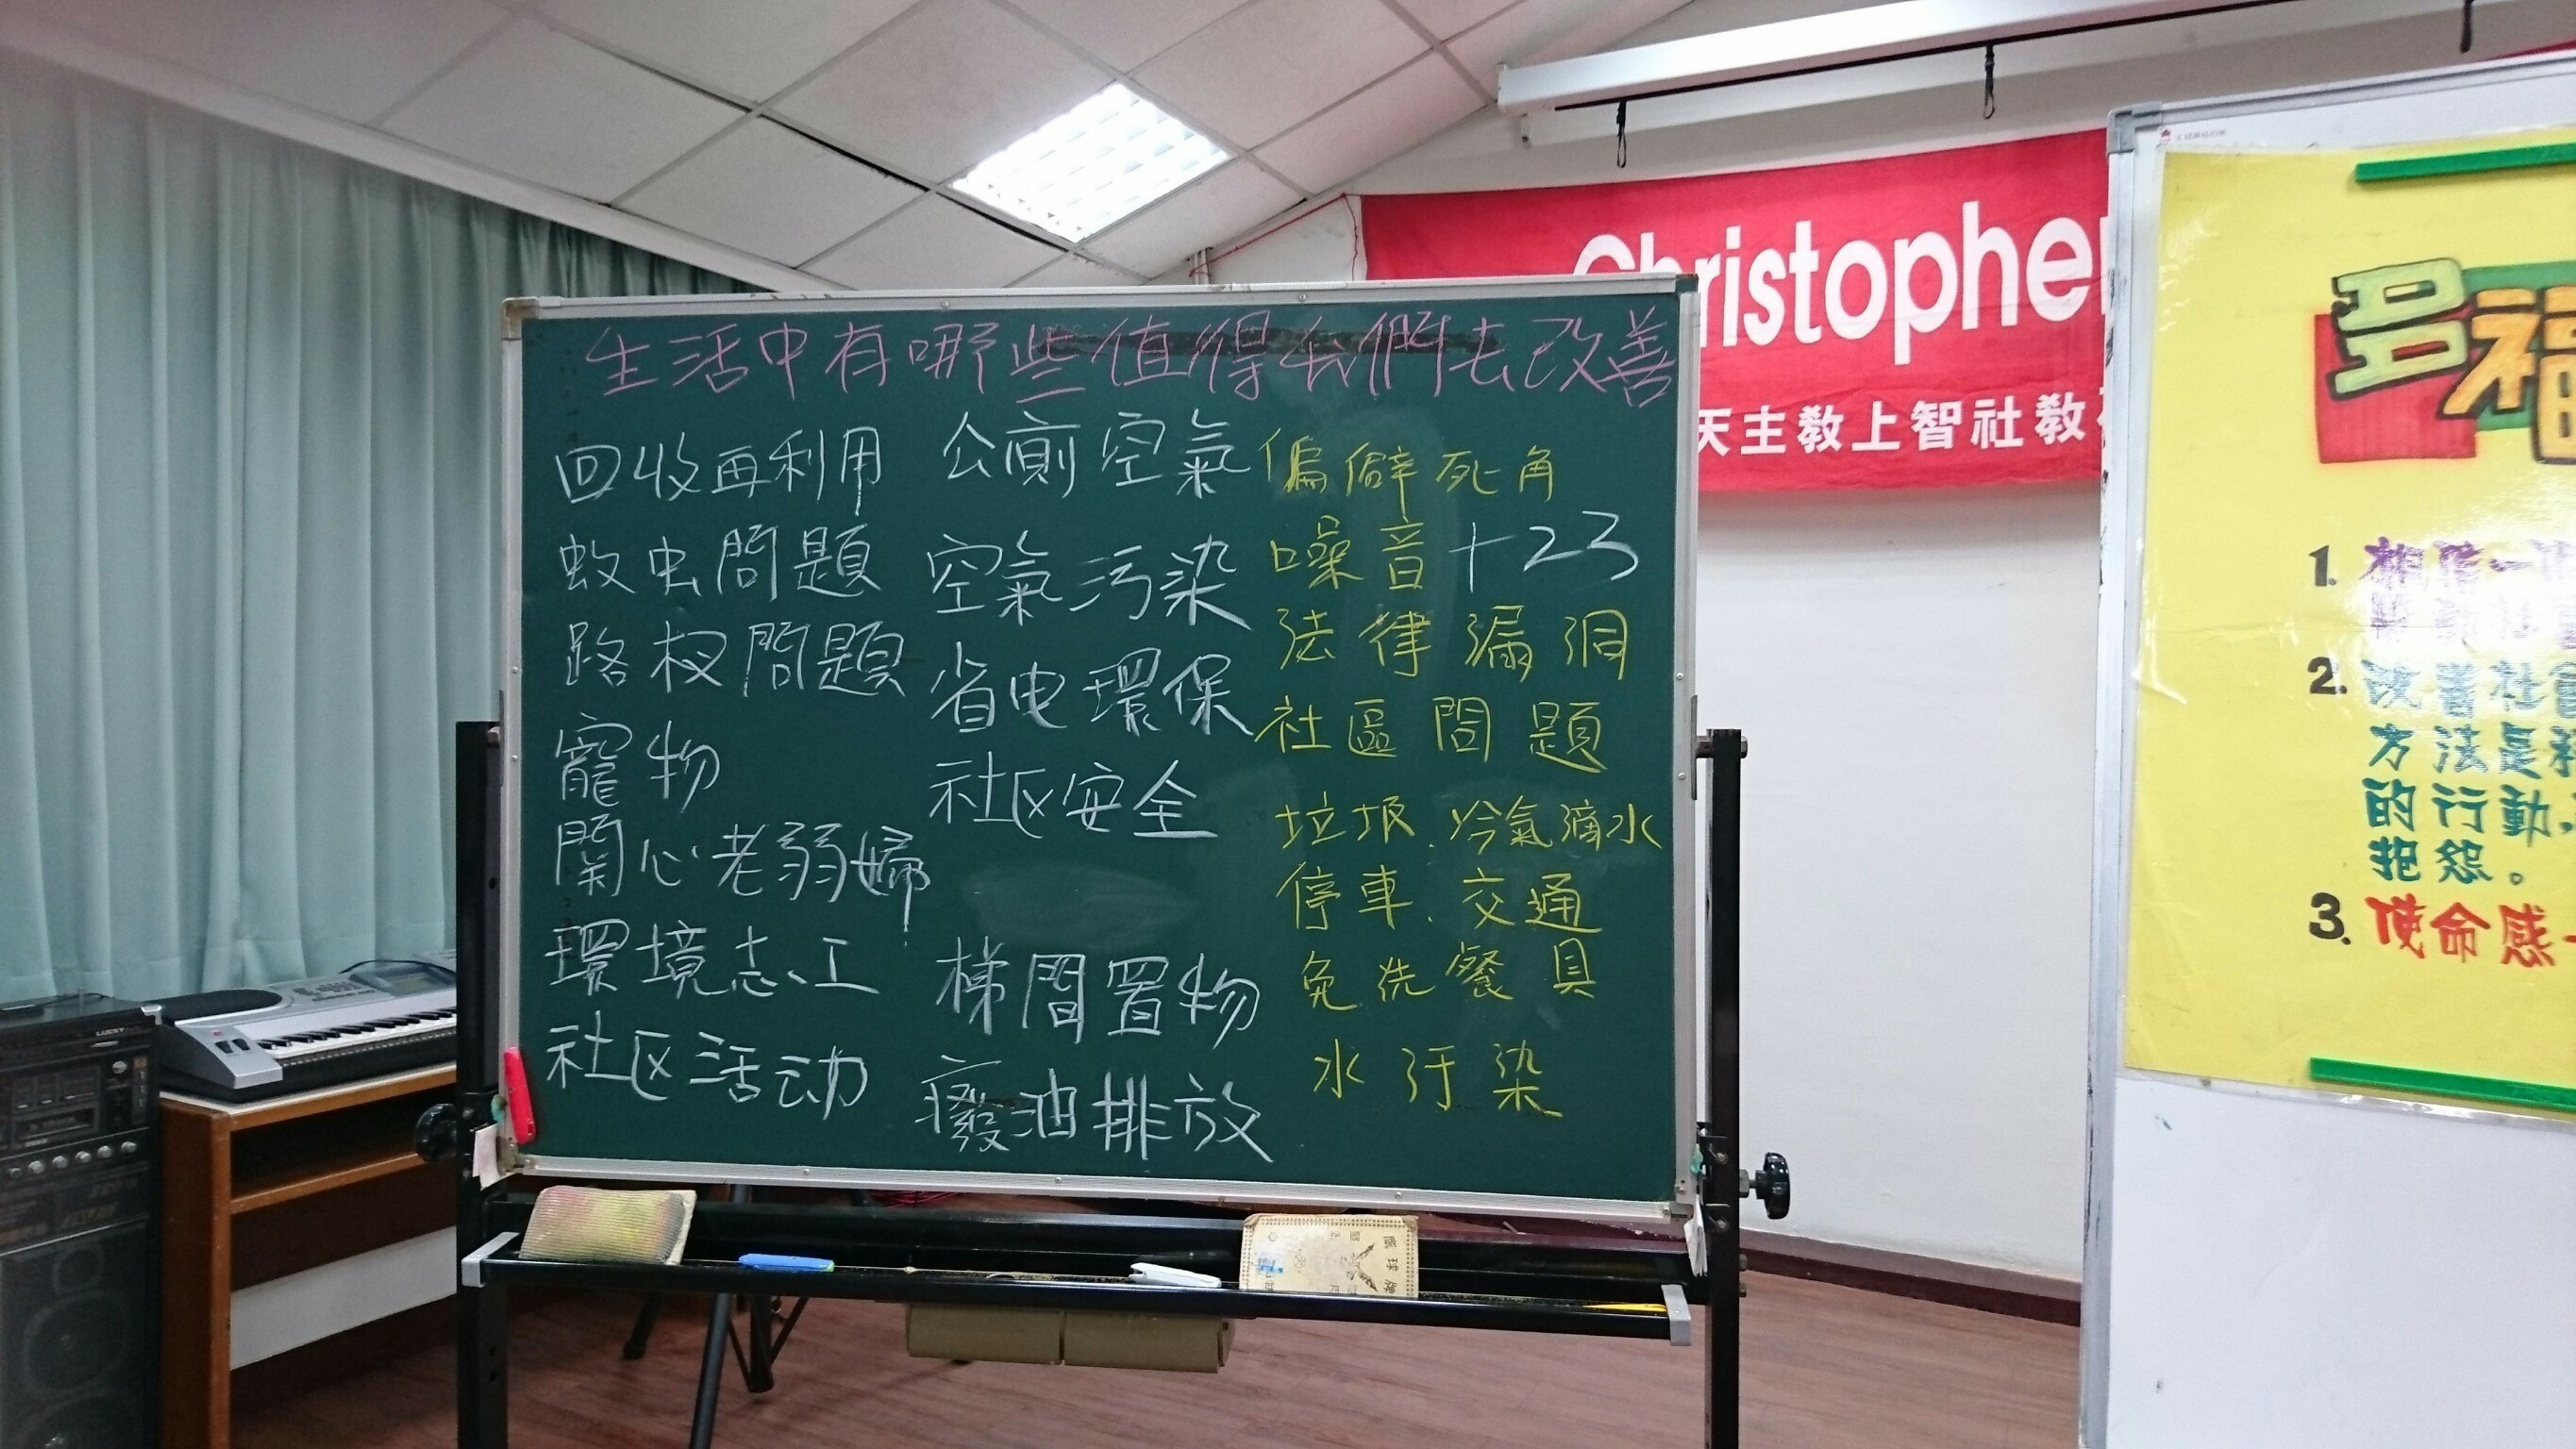 生活中有哪些值得我們去改善
回收再利用
蚊虫問題
路权問題
寵物
關心老弱婦
環境志工
社区活动
公廁空氣
空氣污染
省电環保
社区安全
梯間置物
廢油排放
偏僻死角
噪音+23
法律漏洞
社區問題
垃圾.冷氣滴水
停車.交通
免洗餐具
水汙染
Christopher
天主教上智社教
多福
1.
2. 改善社會
方法是
的行動。
抱怨。
3. 使命感
LUCKY